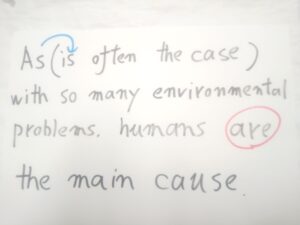 As (is often the case)
with so many environmental
problems. humans are
the main cause.